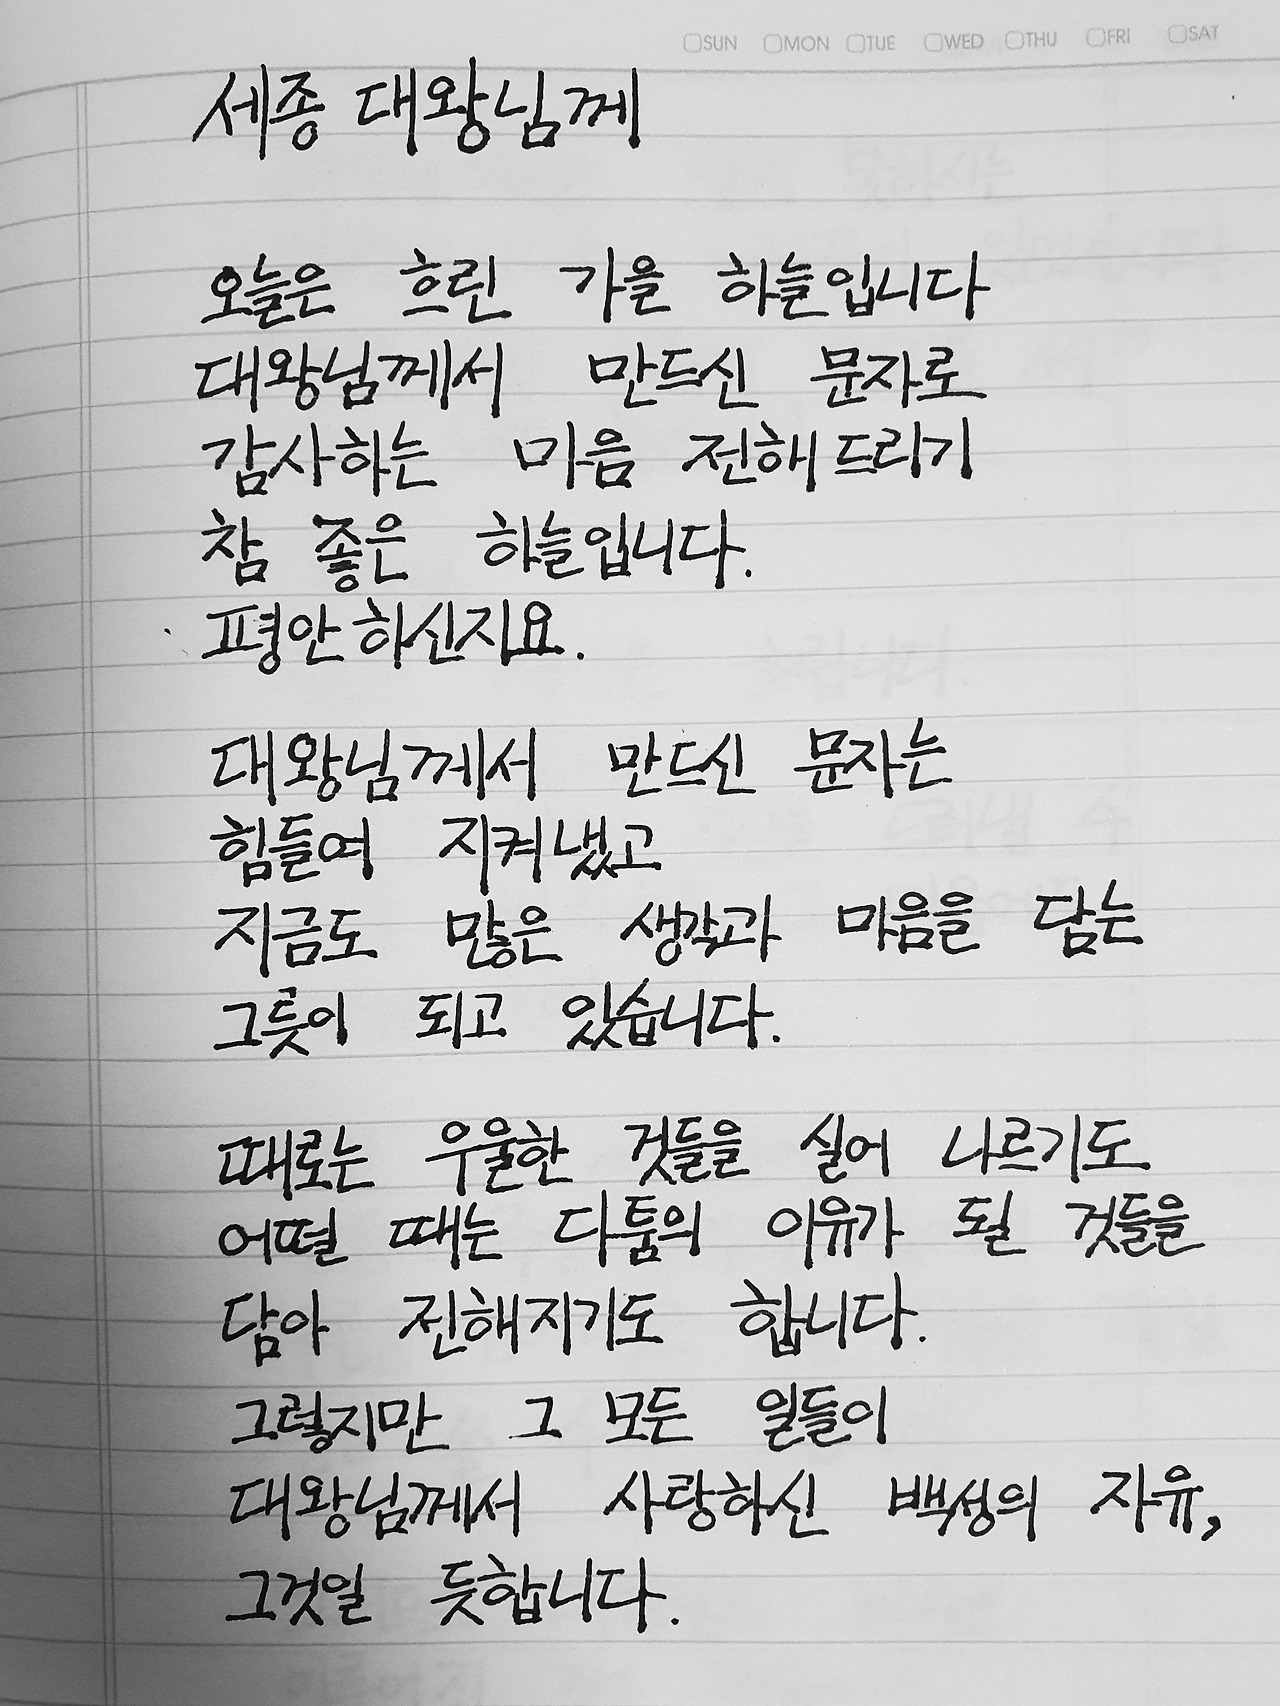 SUN MON TUE WED THU FRI SAT
세종 대왕님께
오늘은 흐린 가을 하늘입니다
대왕님께서 만드신 문자로
감사하는 마음 전해 드리기
참 좋은 하늘입니다.
평안하신지요.
대왕님께서 만드신 문자는
힘들여 지켜냈고
지금도 많은 생각과 마음을 담는
그릇이 되고 있습니다.
때로는 우울한 것들을 실어 나르기도
어떨 때는 다툼의 이유가 될 것들을
담아 전해지기도 합니다.
그렇지만 그 모든 일들이
대왕님께서 사랑하신 백성의 자유,
그것일 듯합니다.